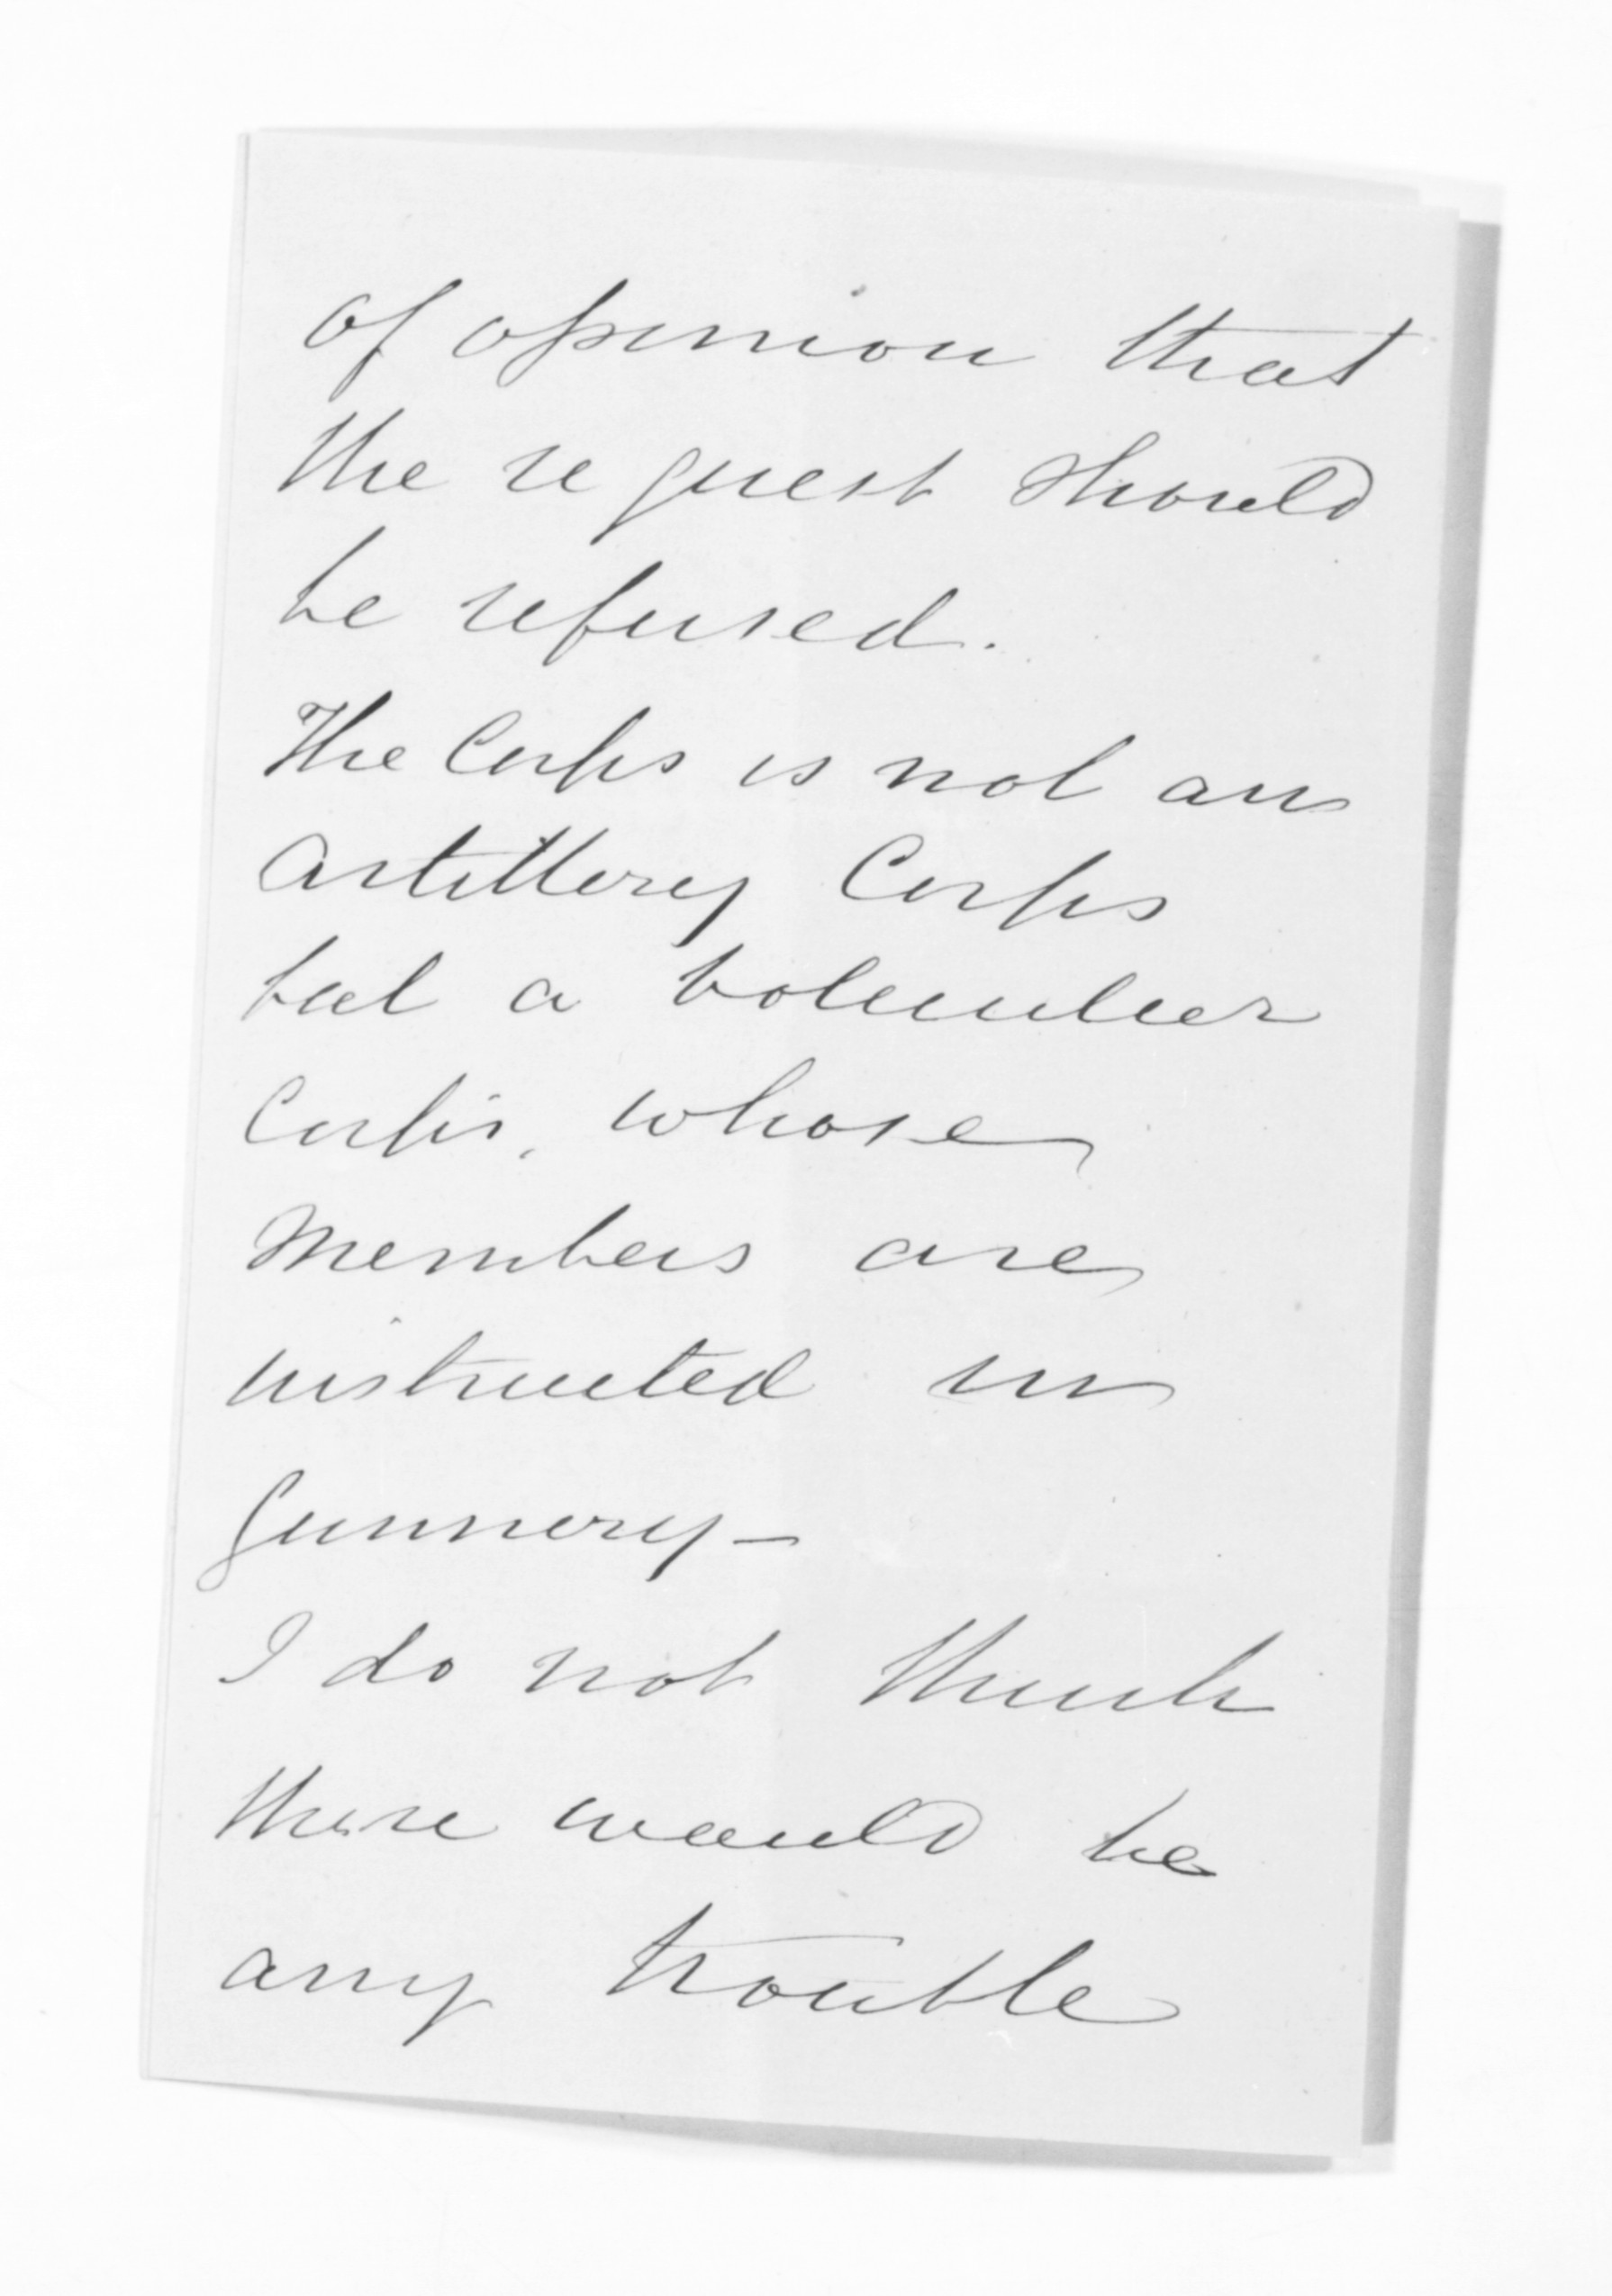 of opinion that
the request should
be refused.
The Corps is not an
Artillery Corps
but a volunteer
Corps, whose
members are
instructed in
gunnery -
I do not think
there would be
any trouble